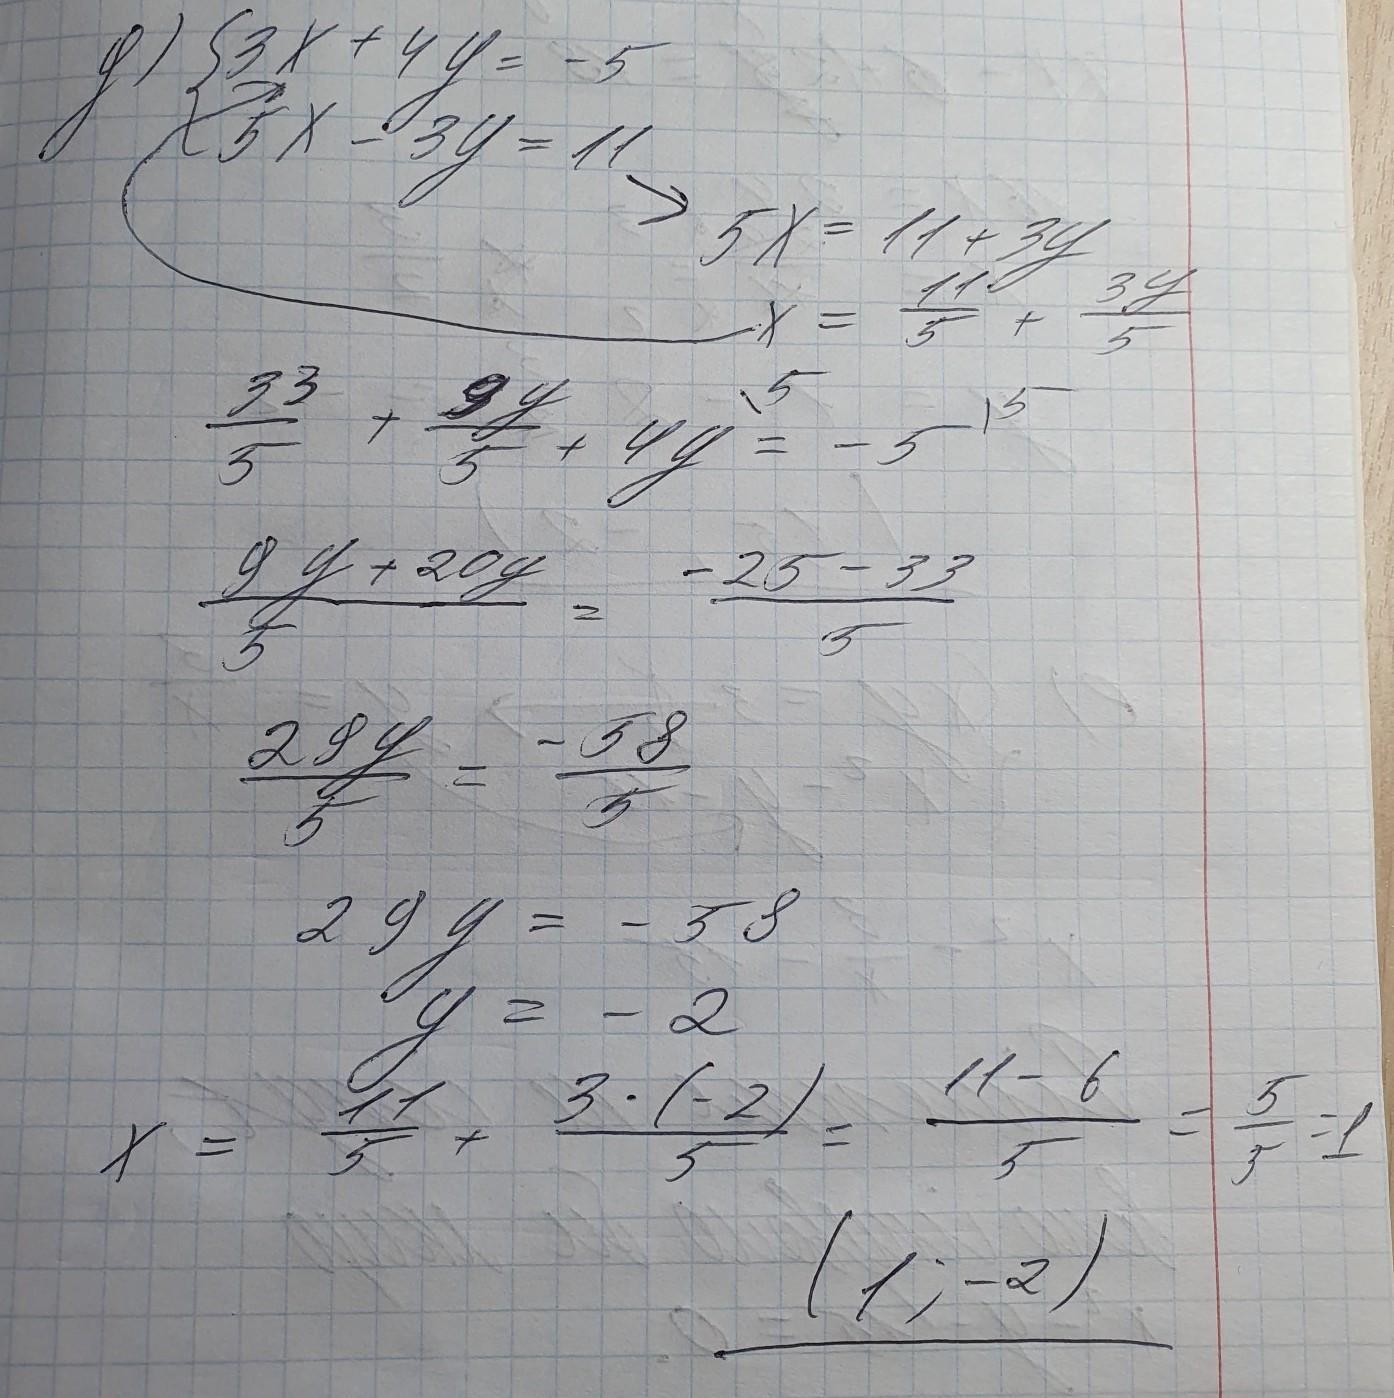 д) {3x + 4y = -5
5x - 3y = 11
5x = 11 + 3y
x = 11/5 + 3y/5
33/5 + 9y/5 + 4y\5 = -5\5
(9y + 20y)/5 = (-25 - 33)/5
29y/5 = -58/5
29y = -58
y = -2
x = 11/5 + 3·(-2)/5 = (11 - 6)/5 = 5/5 = 1
(1; -2)